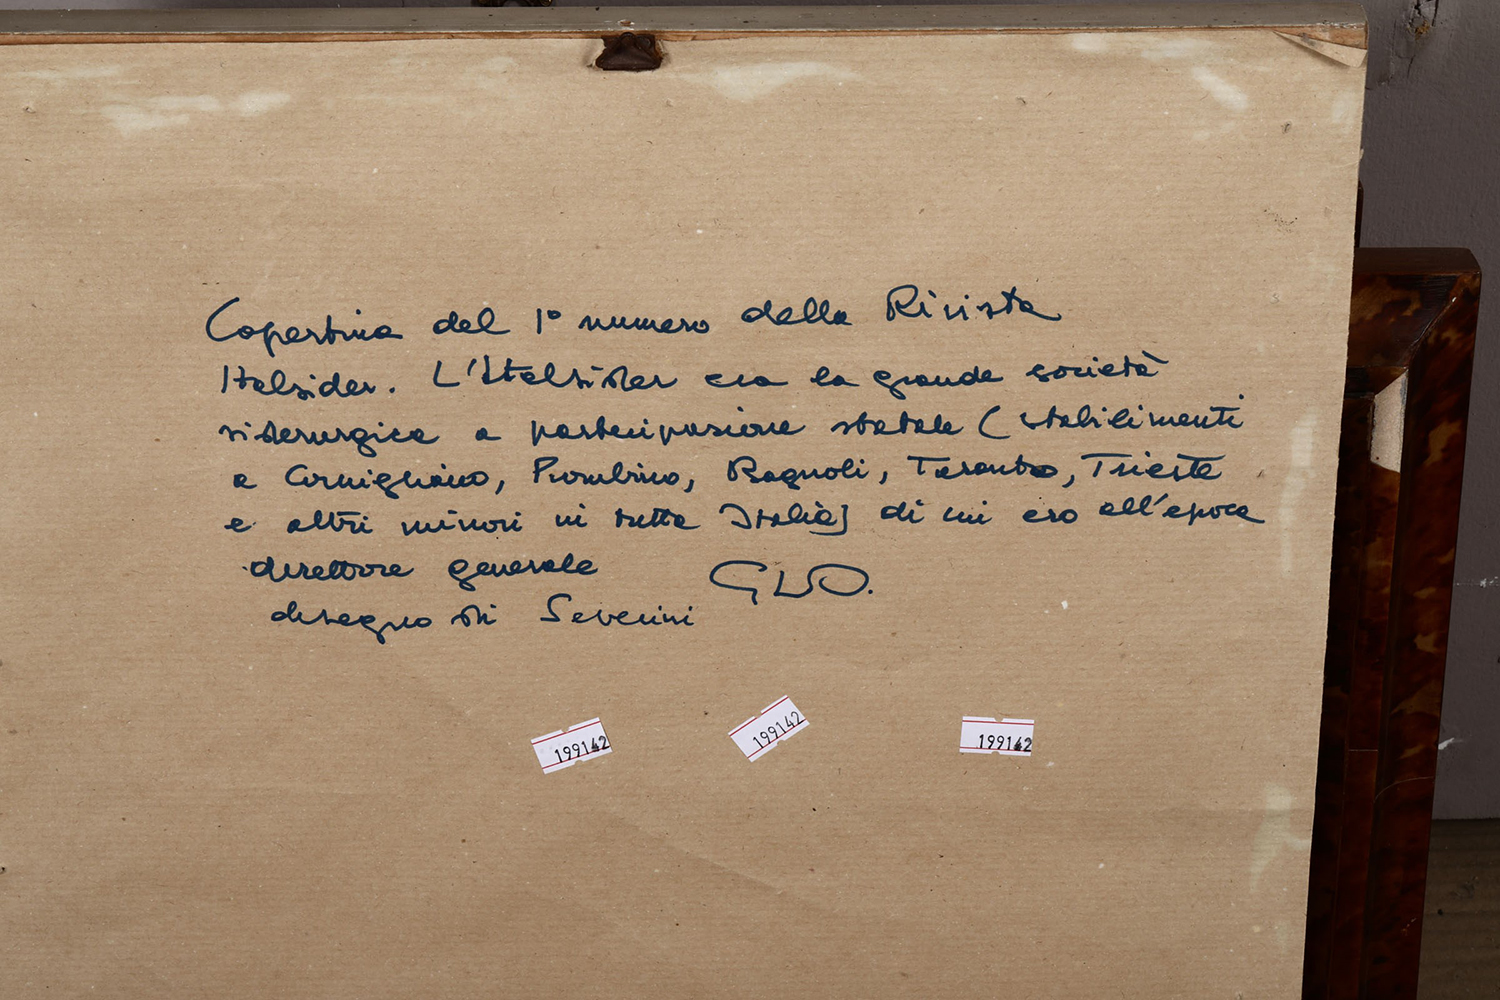 Copertina del 1° numero della Rivista
Italsider. L'Italsider era la grande società
siderurgica a partecipazione statale (stabilimenti
a Cornigliano, Piombino, Bagnoli, Taranto, Trieste
e altri minori in tutta Italia) di cui ero all'epoca
direttore generale GLO.
disegno di Severini
199142 199142 199142